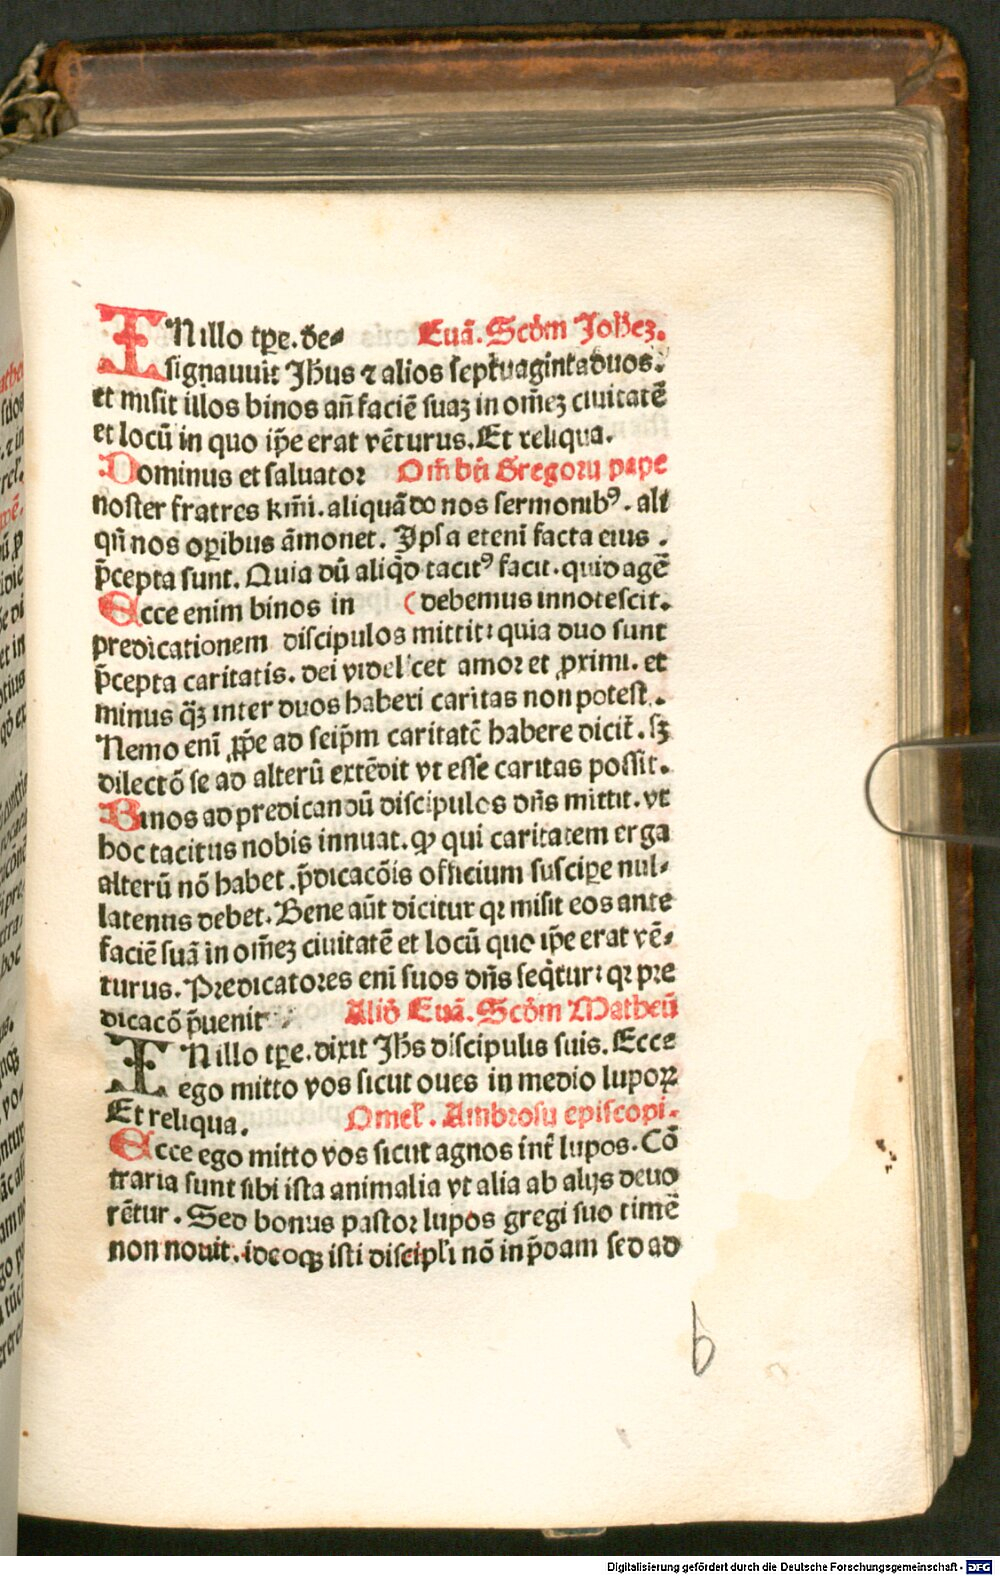 INillo tp̄e. de- Euā. Scd̄m Joh̄ez.
signauuit Jh̄us ⁊ alios septuagintaduos.
et misit illos binos an̄ faciē suaꝫ in om̄eꝫ ciuitatē
et locū in quo ip̄e erat vēturus. Et reliqua.
Dominus et saluator Om̄ bt̄i Gregorij pape
noster fratres km̄i. aliquādo nos sermonibꝰ. ali
qn̄ nos oꝑibus āmonet. Ipsa eteni facta eius.
p̄cepta sunt. Quia dū aliqd̄ tacitꝰ facit. quid agē
Ecce enim binos in ( debemus innotescit.
predicationem discipulos mittit: quia duo sunt
p̄cepta caritatis. dei videlicet amor et ꝓximi. et
minus qꝫ̄ inter duos haberi caritas non potest.
Nemo eni ꝓpͤe ad seip̄m caritatē habere dicit̄. sꝫ
dilectō se ad alterū extēdit vt esse caritas possit.
Binos ad predicandū discipulos dn̄s mittit. vt
hoc tacitus nobis innuat. ꝙ qui caritatem erga
alterū nō habet. p̄dicacōis officium susciꝑe nul-
latenus debet. Bene aūt dicitur qꝛ misit eos ante
faciē suā in om̄eꝫ ciuitatē et locū quo ip̄e erat vē-
turus. Predicatores eni suos dn̄s seqͥtur: qꝛ pre
dicacō p̄uenit Aliō Euā. Scd̄m Matheū
INillo tp̄e. dixit Jh̄s discipulis suis. Ecce
ego mitto vos sicut oues in medio lupoꝝ
Et reliqua. Omel̄. Ambrosij episcopi.
Ecce ego mitto vos sicut agnos int̄ lupos. Cō
traria sunt sibi ista animalia vt alia ab alijs deuo
rētur. Sed bonus pastor lupos gregi suo timē
non nouit. ideoqꝫ isti discipl̄i nō in p̄dam sed ad
b
Digitalisierung gefördert durch die Deutsche Forschungsgemeinschaft - DFG